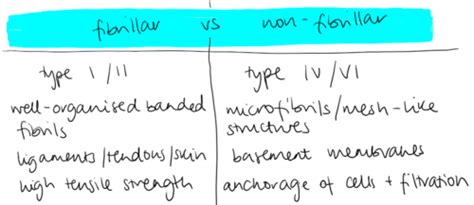 fibrillar vs non-fibrillar
type I/II
type IV/VI
well-organised banded
fibrils
microfibrils/mesh-like
structures
ligaments/tendons/skin
basement membranes
high tensile strength
anchorage of cells + filtration